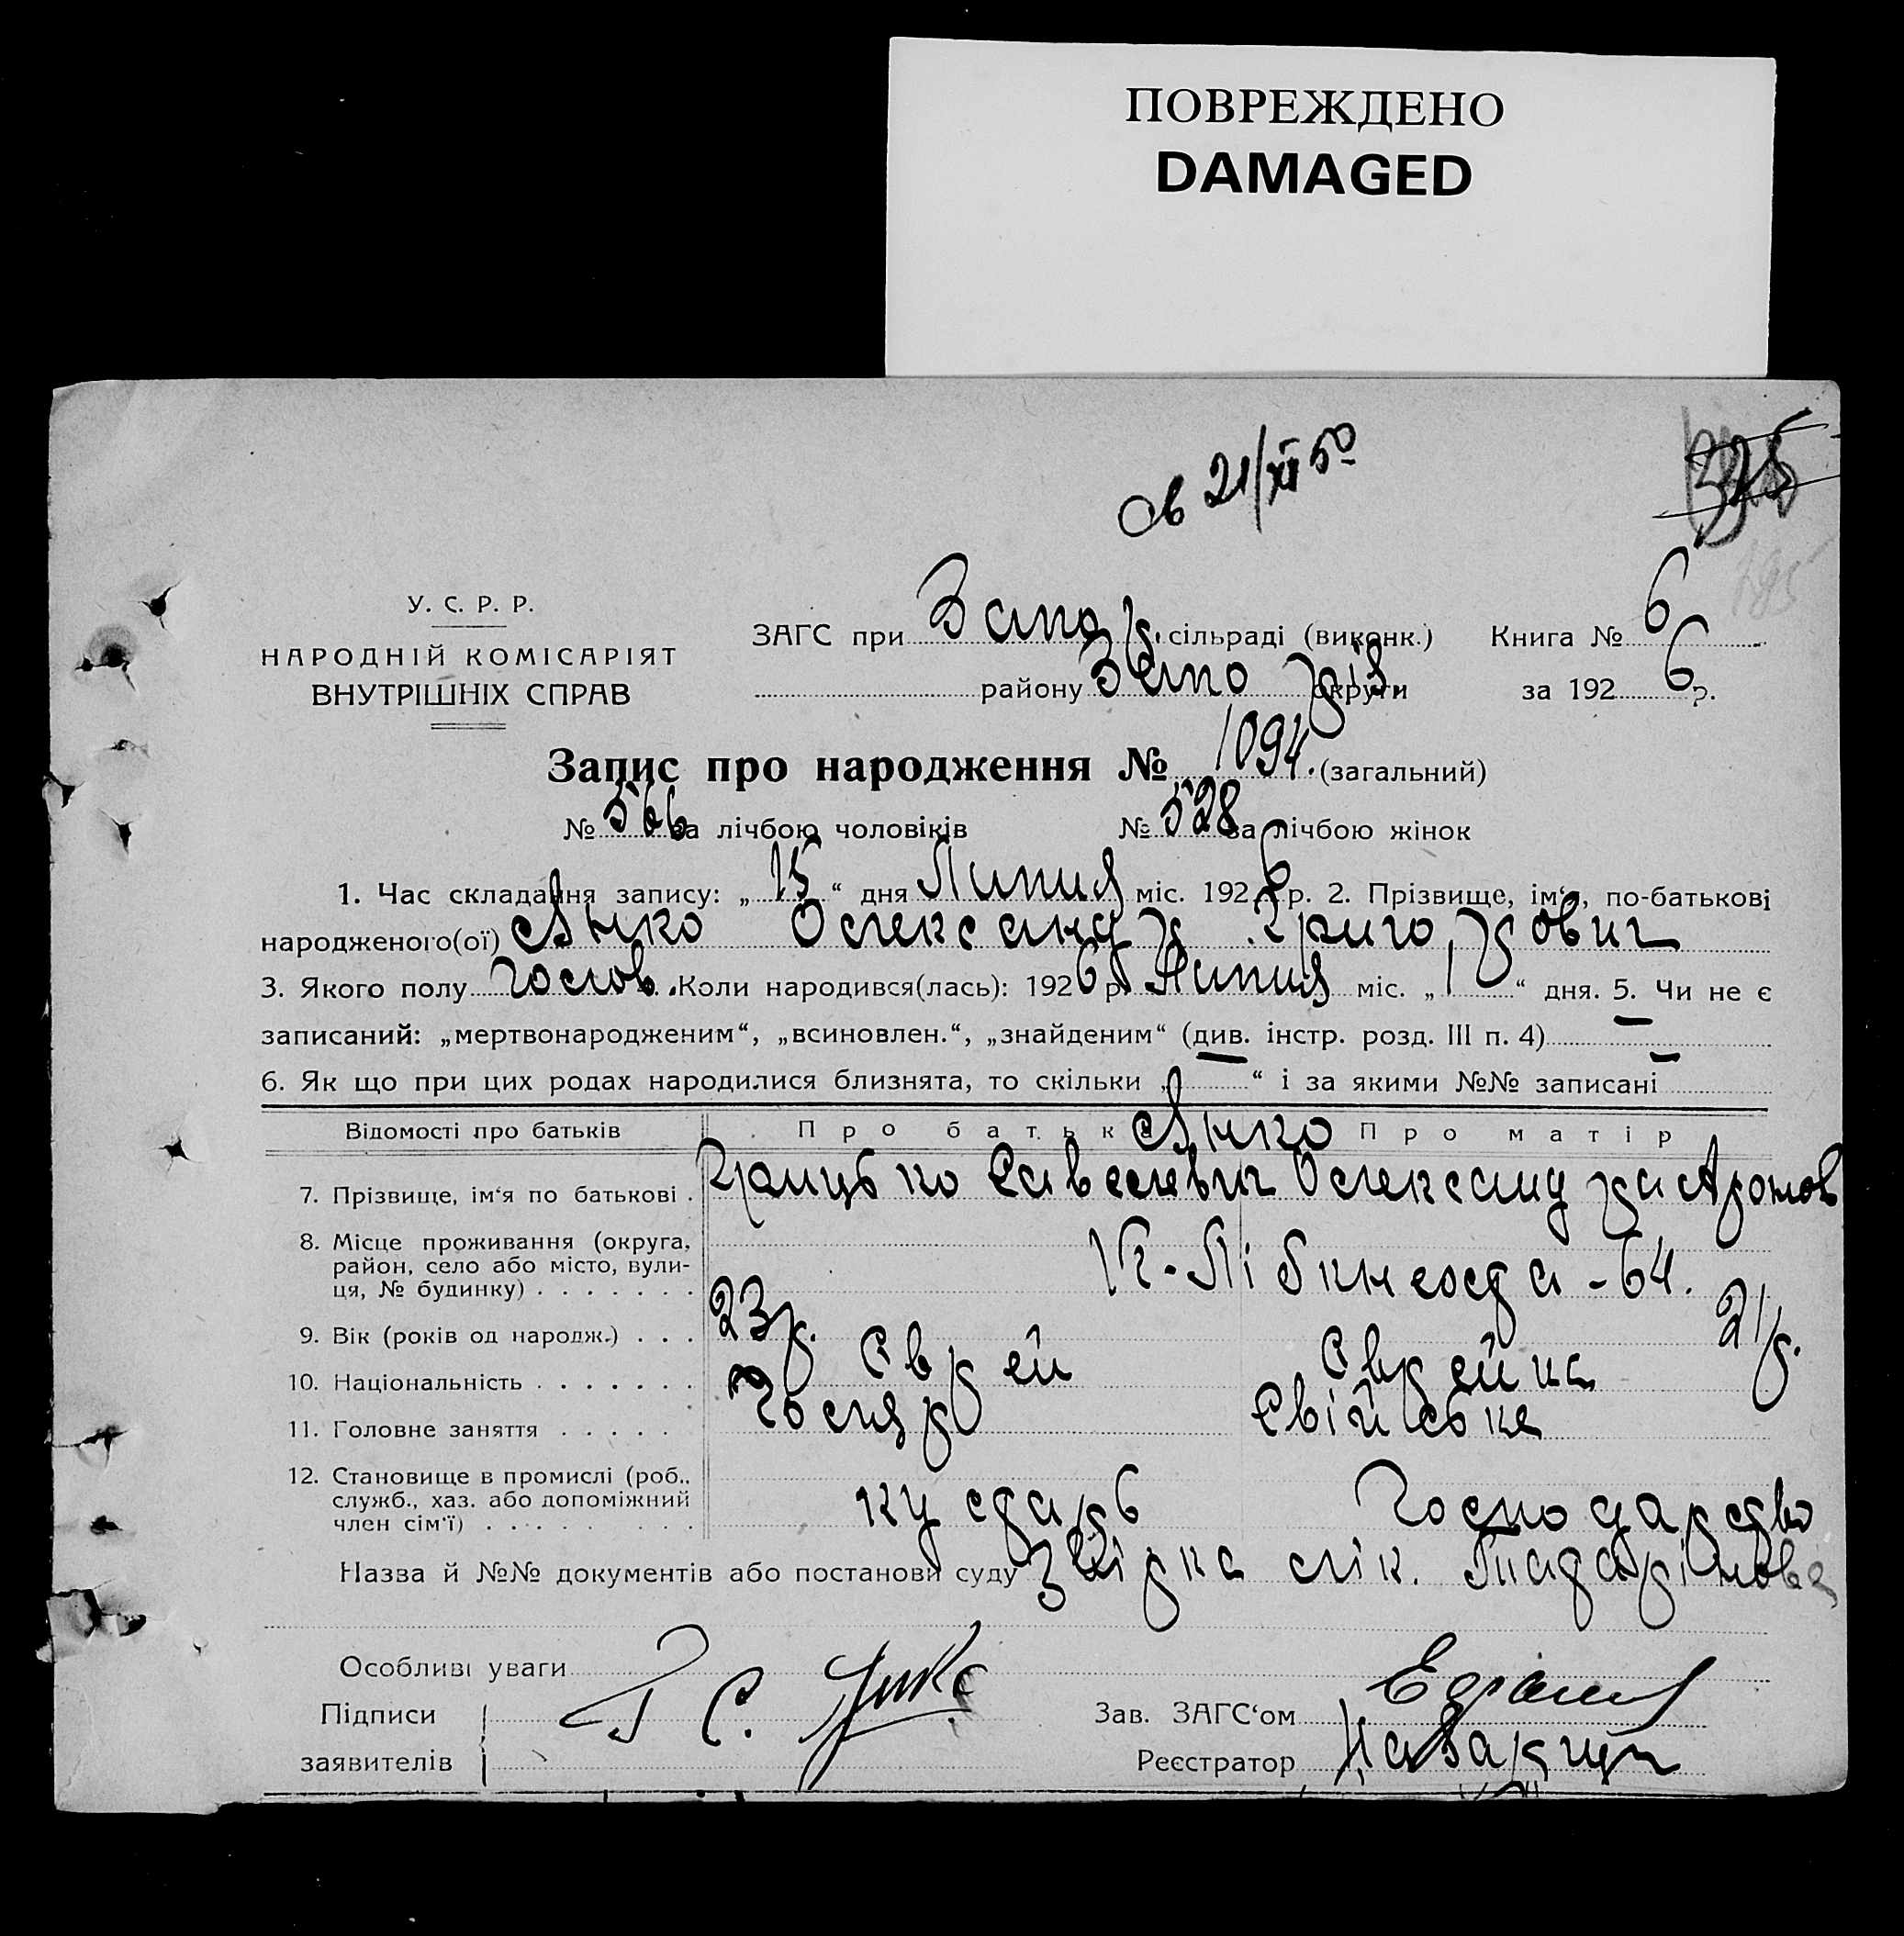 ПОВРЕЖДЕНО
DAMAGED
св 21/XI 50
У. С. Р. Р.
НАРОДНІЙ КОМІСАРІЯТ
ВНУТРІШНІХ СПРАВ
ЗАГС при Запор. сільраді (виконк.) Книга № 6
району Запоріз. округи за 192 6 р.
Запис про народження № 1094. (загальний)
№ 566 за лічбою чоловіків № 528 за лічбою жінок
1. Час складання запису: „ 15 “ дня Липня міс. 192 6 р. 2. Прізвище, ім‘я, по-батькові
народженого(ої) Янко Олександр Григорович
3. Якого полу чолов. Коли народився(лась): 192 6 р. Липня міс. „ 1 “ дня. 5. Чи не є
записаний: „мертвонародженим“, „всиновлен.“, „знайденим“ (див. інстр. розд. III п. 4) —
6. Як що при цих родах народилися близнята, то скільки „ — “ і за якими №№ записані —
Відомості про батьків Про батька Янко Про матір
7. Прізвище, ім‘я по батькові . Грицько Савелевич Олександра Аронов
8. Місце проживання (округа,
район, село або місто, вули-
ця, № будинку) . . . . . . . К. Лібкнехта - 64.
9. Вік (років од народж.) . . . 23 р. 21 р.
10. Національність . . . . . . . Єврей Єврейка
11. Головне заняття . . . . . Столяр Свійське
12. Становище в промислі (роб..
служб., хаз. або допоміжний
член сім‘ї) . . . . . . . . кустарь Господарство
Назва й №№ документів або постанови суду Довірка лік.
Особливі уваги
Підписи
заявителів Г С. Янко
Зав. ЗАГС‘ом
Реєстратор